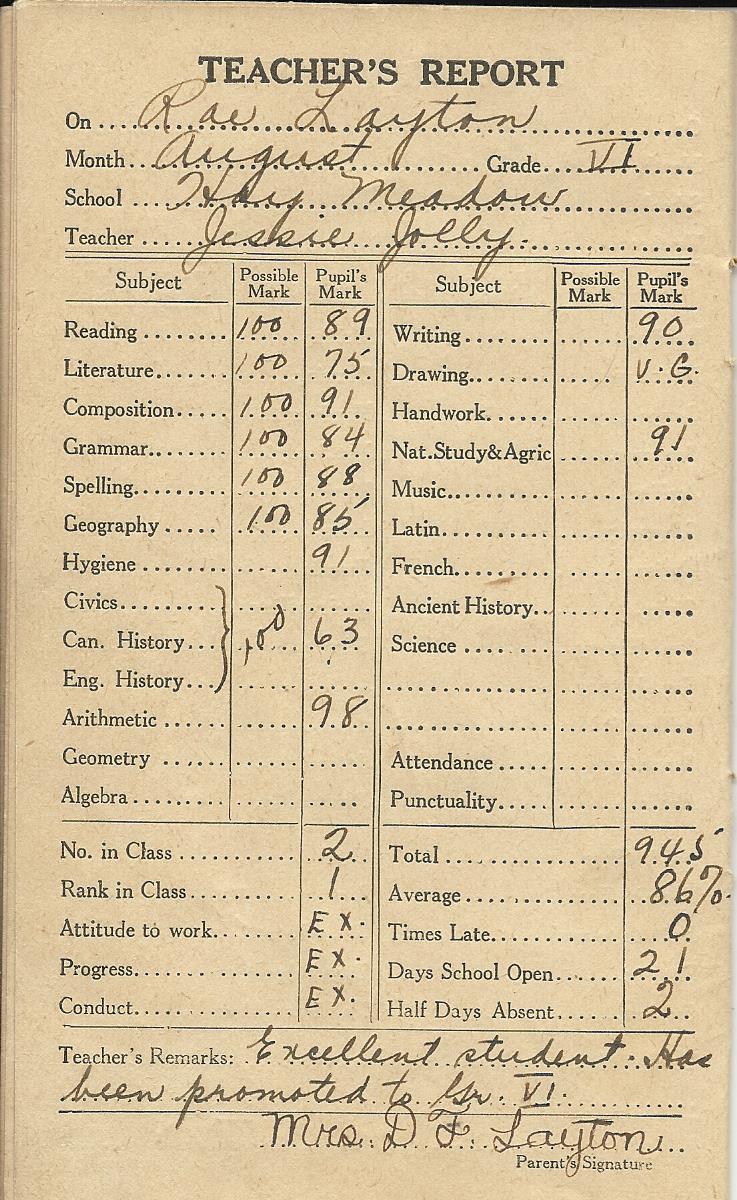 TEACHER'S REPORT
On Rae Layton
Month August Grade VI
School Hay Meadow
Teacher Jessie Jolly.
Subject Possible Mark Pupil's Mark Subject Possible Mark Pupil's Mark
Reading 100 89 Writing 90
Literature 100 75 Drawing V.G.
Composition 100 91 Handwork
Grammar 100 84 Nat.Study&Agric 91
Spelling 100 88 Music
Geography 100 85 Latin
Hygiene 91 French
Civics Ancient History
Can. History 100 63 Science
Eng. History
Arithmetic 98
Geometry Attendance
Algebra Punctuality
No. in Class 2 Total 945
Rank in Class 1 Average 86%
Attitude to work EX. Times Late 0
Progress EX. Days School Open 21
Conduct EX. Half Days Absent 2
Teacher's Remarks: Excellent student. Has
been promoted to Gr. VI.
Mrs. D F. Layton
Parent's Signature